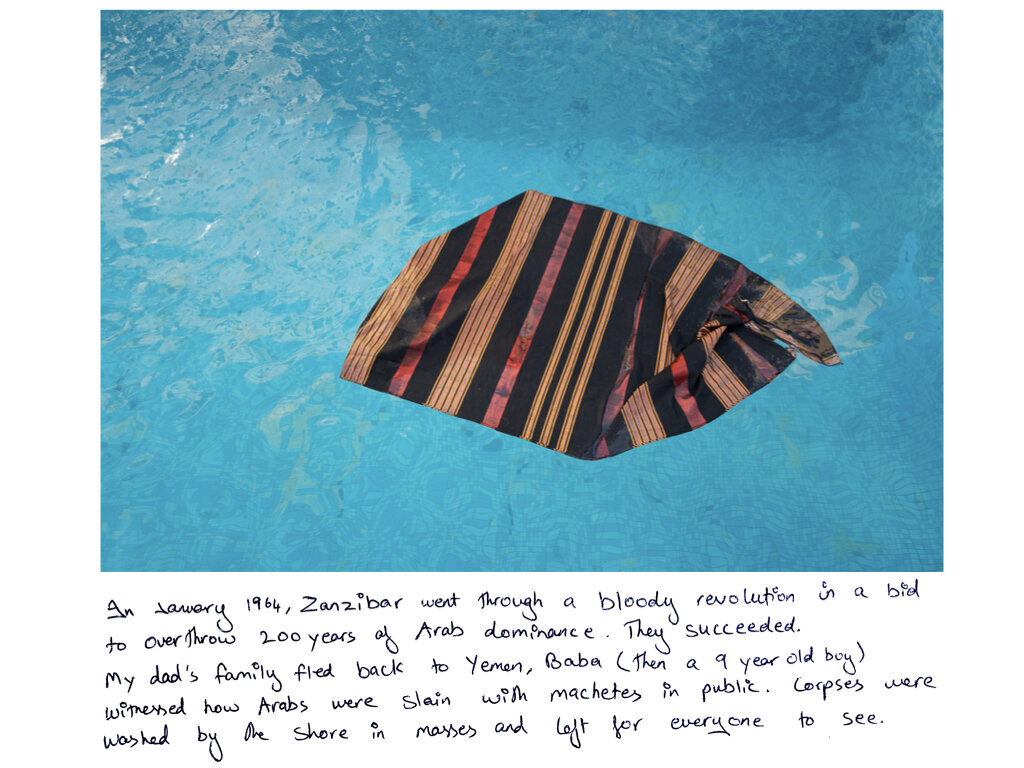 In January 1964, Zanzibar went through a bloody revolution in a bid
to overthrow 200 years of Arab dominance. They succeeded.
My dad's family fled back to Yemen, Baba (then a 9 year old boy)
witnessed how Arabs were slain with machetes in public. Corpses were
washed by the shore in masses and left for everyone to see.